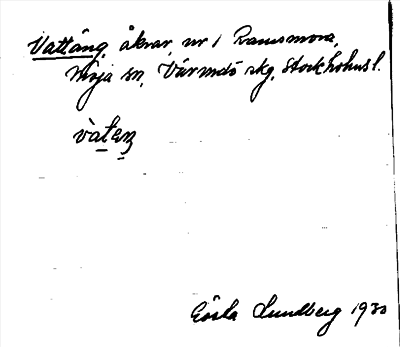 Vattäng, åkrar, nr 1 Ramsmora,
Möja sn, Värmdö skg, Stockholms l.
vàtɛŋ
Gösta Lundberg 1930